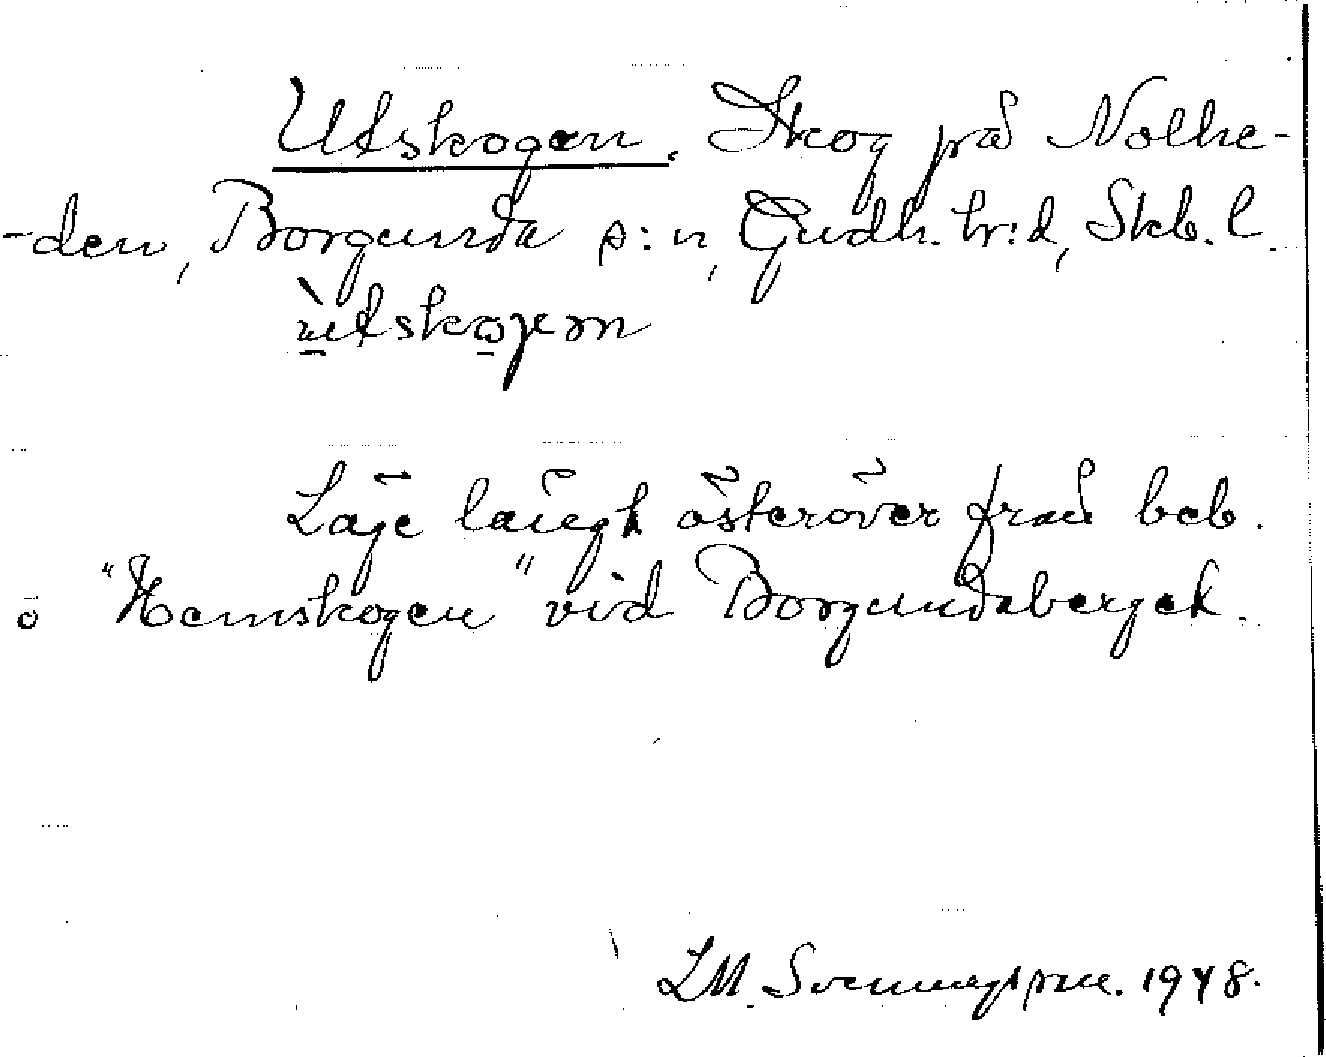 Utskogen. Skog på Nolhe-
-den, Borgunda s:n, Gudh. hr:d, Skb. l.
ùtskogen
Läge långt österöver från beb.
ö "Hemskogen" vid Borgundaberget.
LM. Svennungsson. 1948.